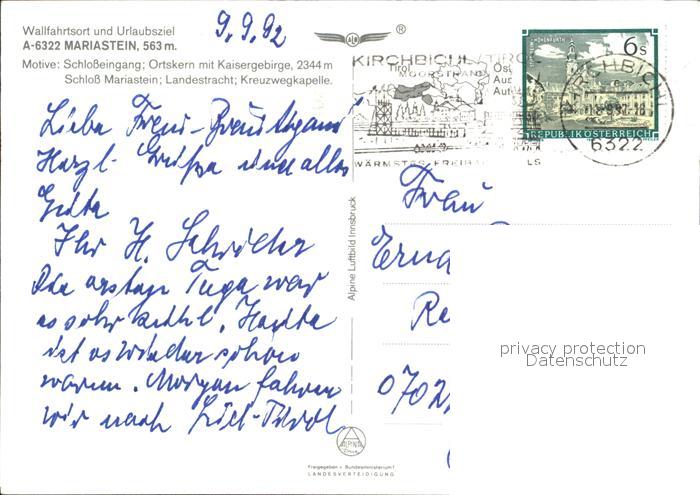 Wallfahrtsort und Urlaubsziel
A-6322 MARIASTEIN, 563 m.
Motive: Schloßeingang; Ortskern mit Kaisergebirge, 2344 m
Schloß Mariastein; Landestracht; Kreuzwegkapelle.
9.9.92
Liebe
Herzl. Grüße und alles
Gute
Ihr H. Schröder
Die ersten Tage war
es sehr kühl. Heute
ist es wieder schön
warm. Morgen fahren
wir nach Süd-Tirol
Alpine Luftbild Innsbruck
ALPINA
Freigegeben v. Bundesministerium f.
LANDESVERTEIDIGUNG
KIRCHBICHL / TIROL
Tirol
MOORSTRAND
WÄRMSTES FREIBA LS
6 S
REPUBLIK ÖSTERREICH
KIRCHBICHL
6322
Frau
Erna
Re
0702
privacy protection
Datenschutz